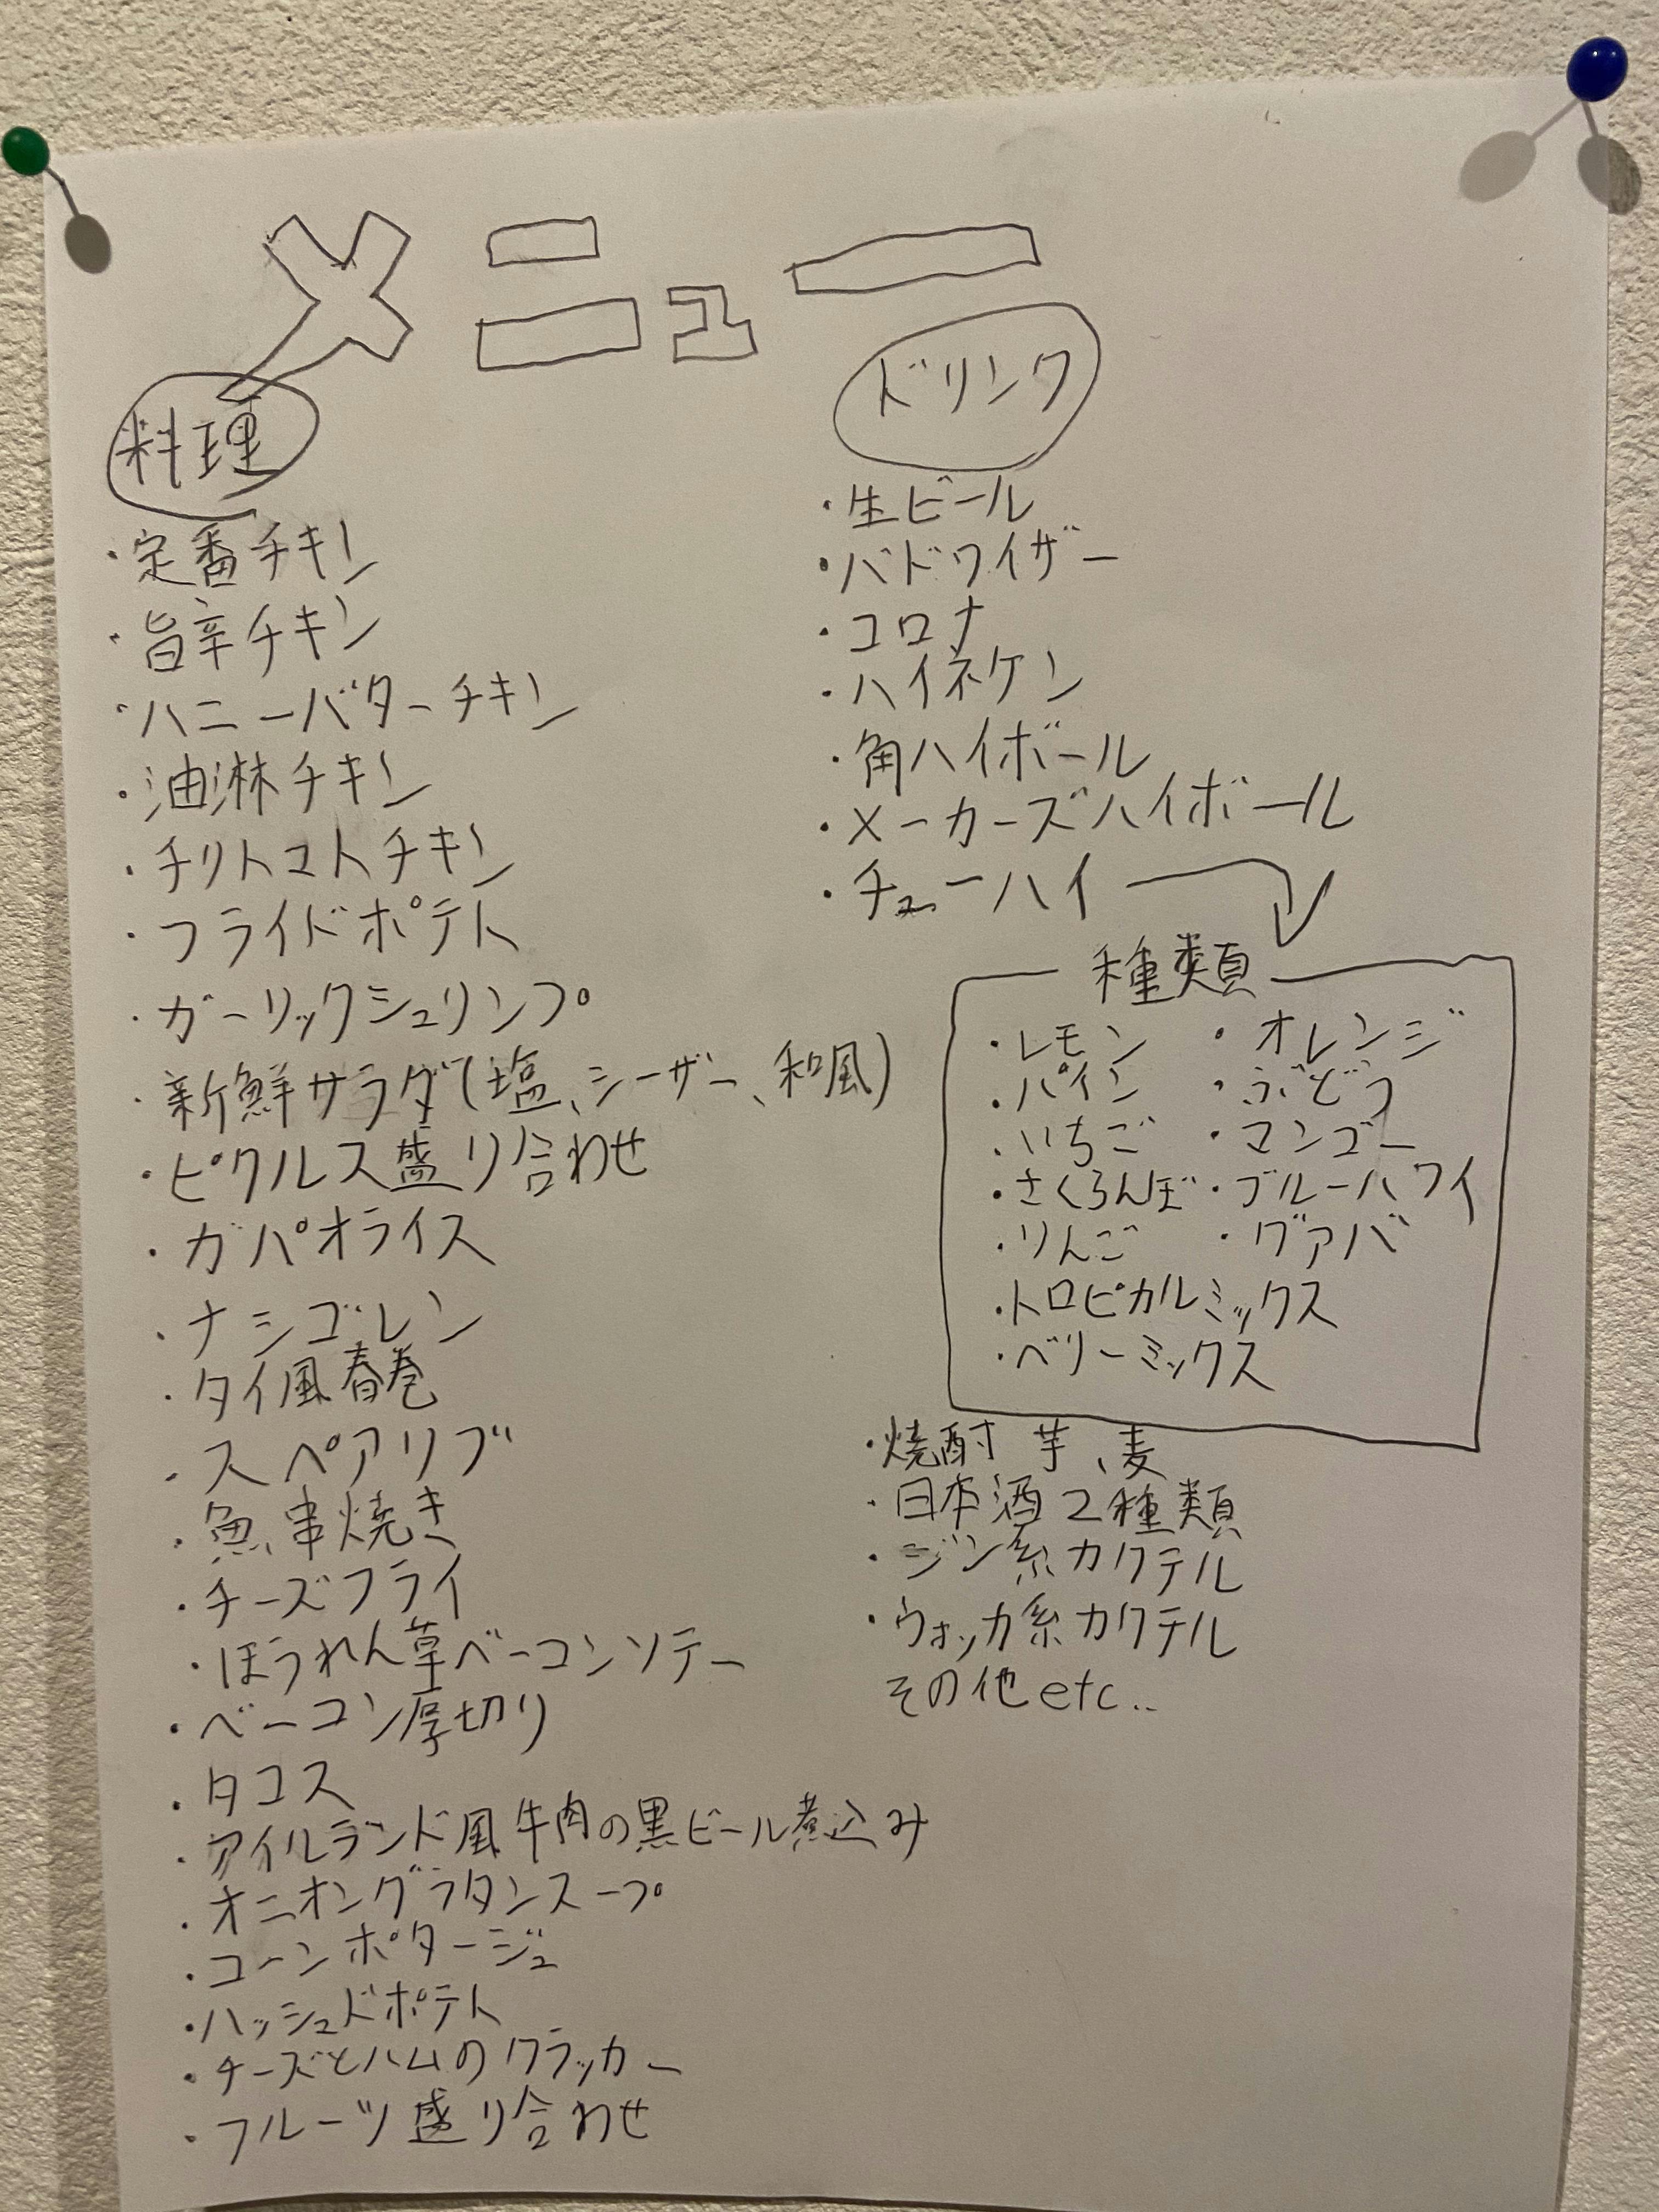 メニュー
料理
・定番チキン
・旨辛チキン
・ハニーバターチキン
・油淋チキン
・チリトマトチキン
・フライドポテト
・ガーリックシュリンプ
・新鮮サラダ(塩、シーザー、和風)
・ピクルス盛り合わせ
・ガパオライス
・ナシゴレン
・タイ風春巻
・スペアリブ
・魚串焼き
・チーズフライ
・ほうれん草ベーコンソテー
・ベーコン厚切り
・タコス
・アイルランド風牛肉の黒ビール煮込み
・オニオングラタンスープ
・コーンポタージュ
・ハッシュドポテト
・チーズとハムのクラッカー
・フルーツ盛り合わせ
ドリンク
・生ビール
・バドワイザー
・コロナ
・ハイネケン
・角ハイボール
・メーカーズハイボール
・チューハイ
種類
・レモン ・オレンジ
・パイン ・ぶどう
・いちご ・マンゴー
・さくらんぼ ・ブルーハワイ
・りんご ・グァバ
・トロピカルミックス
・ベリーミックス
・焼酎 芋、麦
・日本酒2種類
・ジン系カクテル
・ウォッカ系カクテル
その他etc..